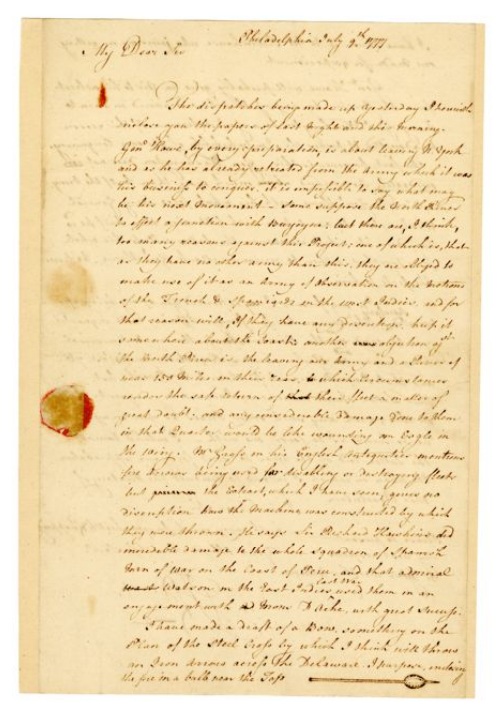 Philadelphia July 9th 1777
My Dear Sir
The dispatches being made up yesterday I knowish
inclose you the papers of Last Night and this Morning.
Genl Howe, by every preparation, is about leaving N York
and as he has already retreated from the Army which it was
his business to conquer it is impossible to say what may
be his next movement – some suppose the North River
to effect a junction with Burgoyne; but there are, I think,
too many reasons against this Project; one of which is, that
as they have no other army than this, they are obliged to
make use of it as an Army of Observation on the Motions
of the French & Spaniards in the West Indies, and for
that reason will, if they have any discretion, keep it
somewhere about the Coast; another objection agst
the North River is the leaving our Army and a River of
near 150 Miles in their rear, which Circumstances
render the safe return of their fleet a matter of
great doubt; and any considerable Damage done to them
in that Quarter would be like wounding an Eagle in
the Wing. Mr Grose in his English Antiquities mentions
fire Arrows being used for disabling or destroying fleets
but the Extract, which I have seen, gives no
discription how the Machine was constructed by which
they were thrown. He says Sir Richard Hawkins did
incredible damage to the whole Squadron of Spanish
Men of War on the Coast of Peru, and that admiral
Watson in the East Indies last War used them in an
engagement with Monsr D'Ache, with great Success.
I have made a draft of a Bow, something on the
Plan of the Steel Cross by which I think will throw
an Iron Arrow across the Delaware. I purpose, inclosing
the fire in a bulb near the Top